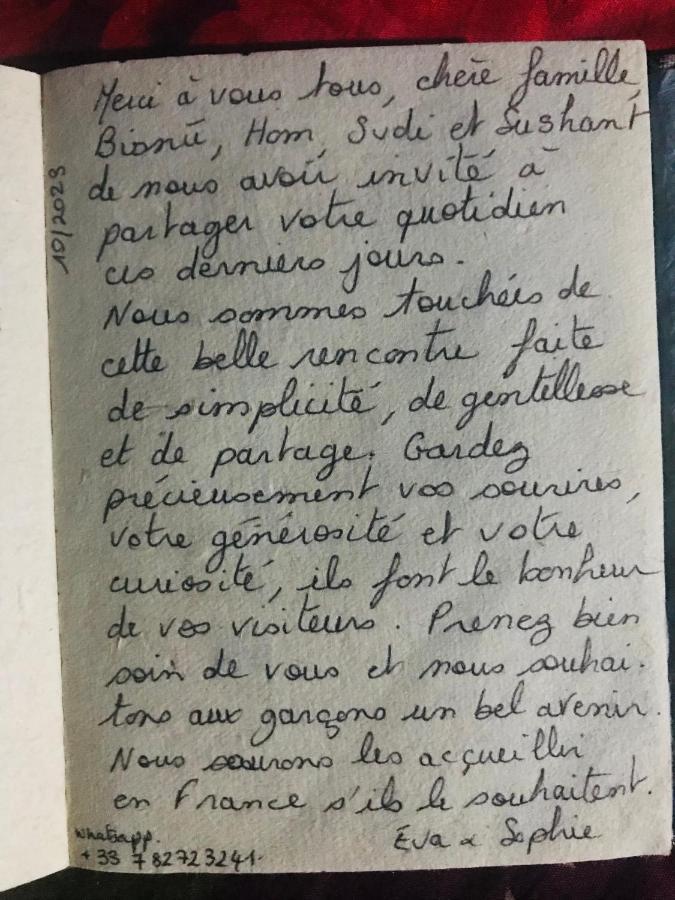 Merci à vous tous, chère famille,
Bisnü, Hom, Sudi et Sushant
de nous avoir invité à
partager votre quotidien
ces derniers jours.
Nous sommes touchées de
cette belle rencontre faite
de simplicité, de gentillesse
et de partage. Gardez
précieusement vos sourires,
votre générosité et votre
curiosité, ils font le bonheur
de vos visiteurs. Prenez bien
soin de vous et nous souhai-
tons aux garçons un bel avenir.
Nous saurons les accueillir
en France s'ils le souhaitent.
Eva & Sophie
whatsapp.
+33 782723241.
10/2023